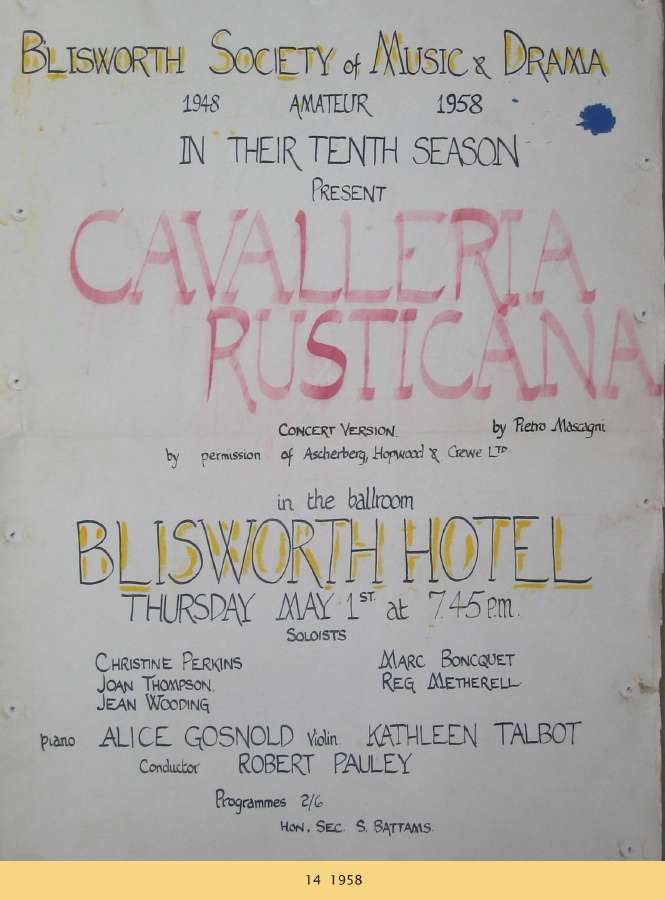 BLISWORTH SOCIETY of MUSIC & DRAMA
1948 AMATEUR 1958
IN THEIR TENTH SEASON
PRESENT
CAVALLERIA
RUSTICANA
CONCERT VERSION. by Pietro Mascagni
by permission of Ascherberg, Hopwood & Crewe LTD.
in the ballroom
BLISWORTH HOTEL
THURSDAY MAY 1ST. at 7.45 p.m.
SOLOISTS
CHRISTINE PERKINS MARC BONCQUET
JOAN THOMPSON. REG METHERELL
JEAN WOODING
piano ALICE GOSNOLD Violin KATHLEEN TALBOT
Conductor ROBERT PAULEY
Programmes 2/6
HON. SEC. S. BATTAMS.
14 1958